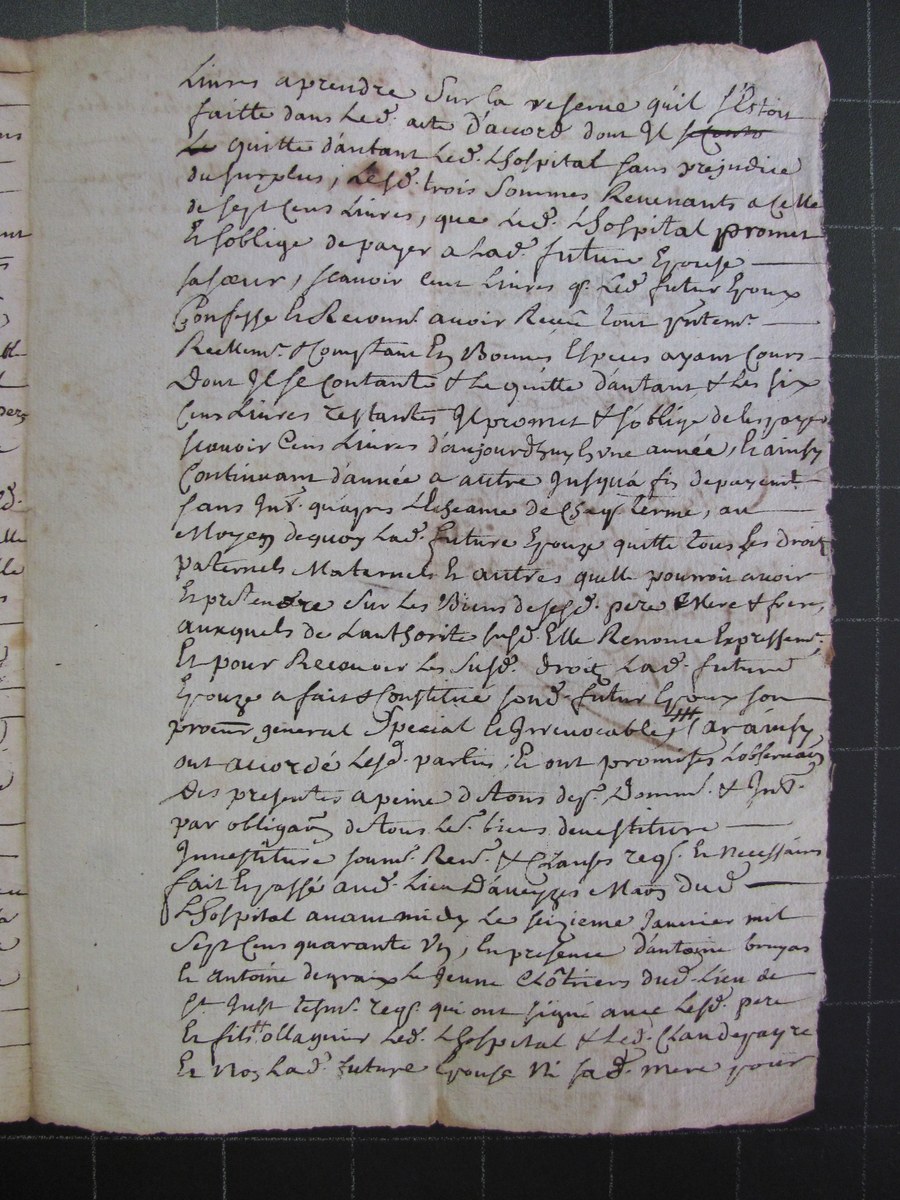 Livres aprendre sur la reserve quil s'estoit
faitte dans led. acte d'accord dont Il se Conte
Le quitte d'autant Led. Lhospital sans prejudice
du surplus, Lesd. trois sommes Revenants a Celle
de sept Cens Livres, que Led. Lhospital promet
Et soblige de payer a Lad. future Epouse
sa soeur, scavoir cent Livres q. Led. futur Epoux
Confesse Et Reconn. avoir Receu tout pntem.
Reellem. & Comptant En Bonnes Especes ayant Cours
Dont Il se Contante & Le quitte d'autant & Les six
Cens Livres restantes Il promet & s'oblige de les payer
scavoir Cens Livres d'aujourd'huy En une année, Et ainsy
Continuant d'année a autre Jusqu'a fin de payemt.
sans Int. qu'apres L'Escheance de Chaq. terme, au
Moyen de quoy Lad. future Epouze quitte tous Les droits
paternels Maternels Et autres quelle pourroit avoir
Et pretendre sur Les Biens de sesd. pere & Mere & frere,
auxquels de Lauthorité susd. Elle Renonce Expressem.
Et pour Recevoir Les susd. droitz Lad. future
Epouze a fait & Constitué sond. futur Epoux son
procur general special Et Irrevocable, Car ainsy
ont accordé Lesd. parties, Et ont promises Lobservaon
Des presentes a peine de tous desp. Domm. & Int.
par obligaon de tous Les. biens devestiture
Investiture soum. Ren. & Clauses reqs. Et Necessaires
fait Et passé aud. Lieu D'aveyzes Maon dud.
Lhospital avant midy Le seizieme Janvier mil
sept Cens quarante un, En presence d'antoine bruyas
Et antoine degraix Le Jeune Clôtriers dud. Lieu de
St. Just tesm. reqs. qui ont signé avec Lesd. pere
Et fils ollagnier Led. Lhospital & Led. Claudefayre
Et Non Lad. future Epouse Ni sad. mere pour